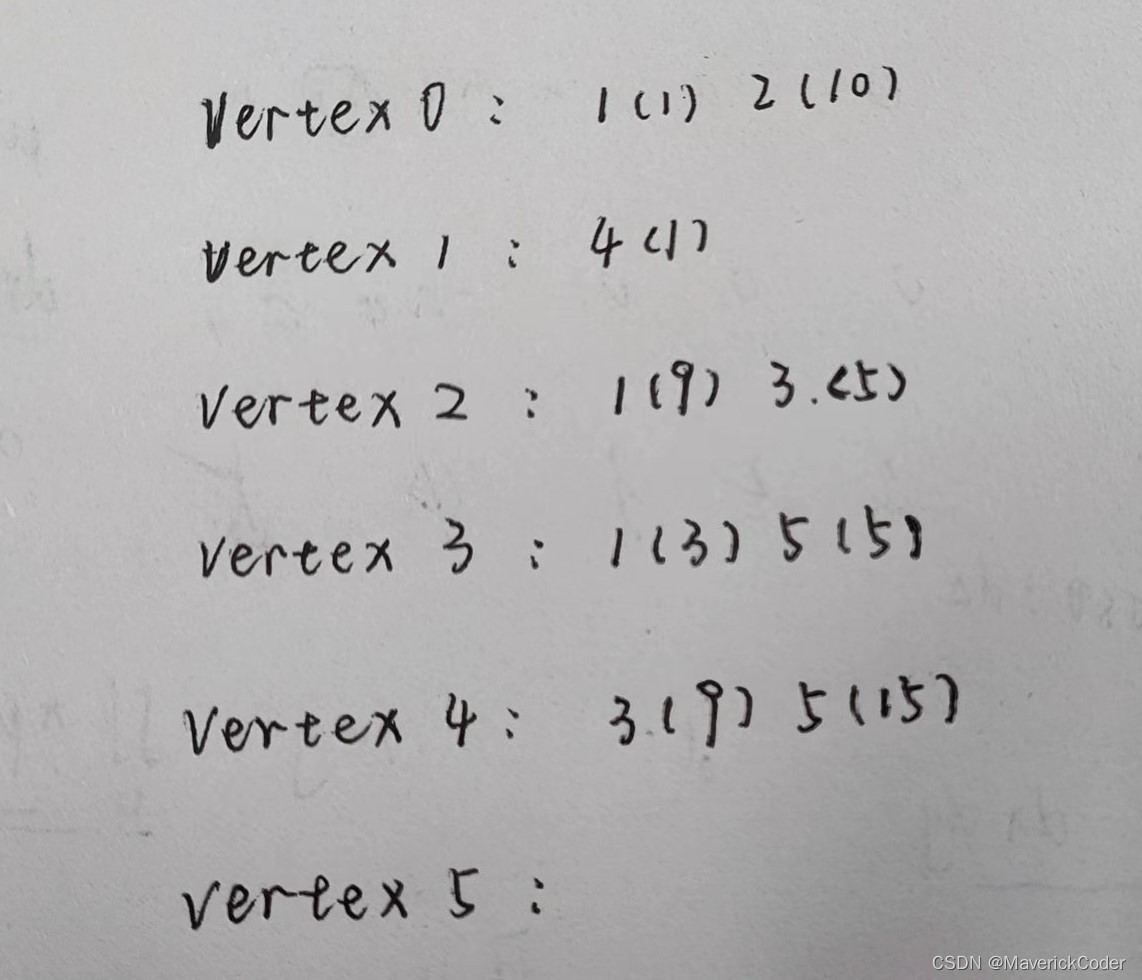 Vertex 0 : 1(1) 2(10)
vertex 1 : 4(1)
vertex 2 : 1(9) 3.(5)
vertex 3 : 1(3) 5(5)
vertex 4 : 3.(9) 5(15)
vertex 5 :
CSDN @MaverickCoder